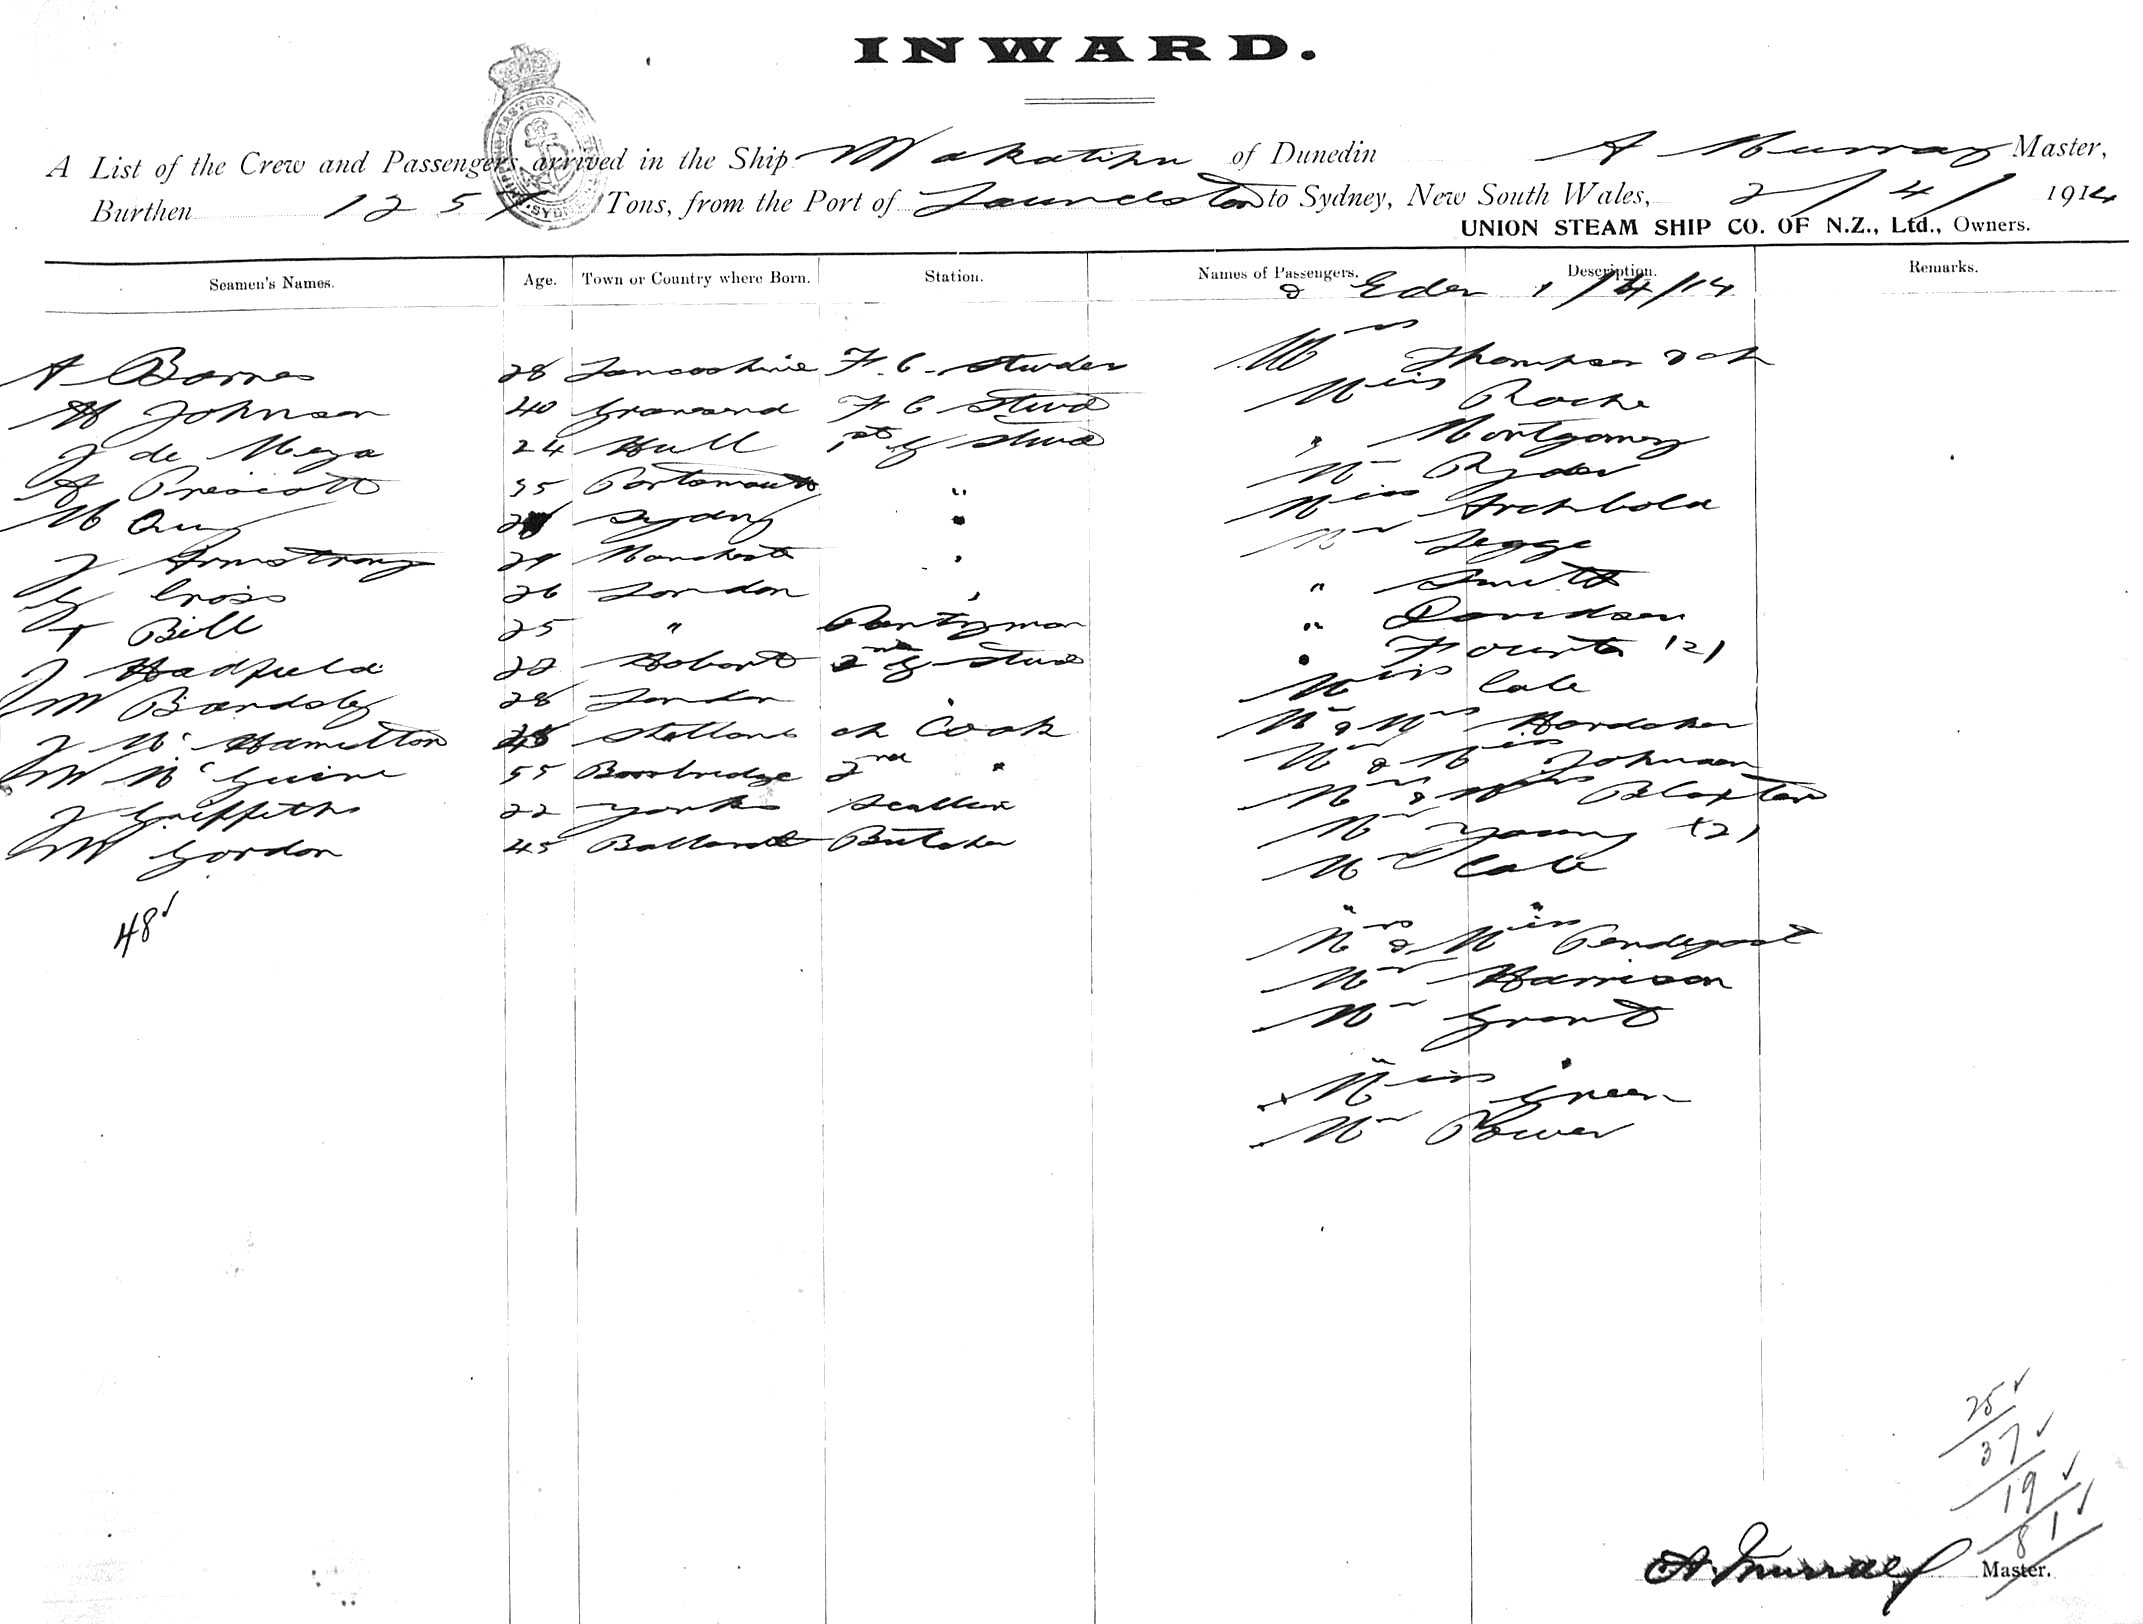 INWARD.
A List of the Crew and Passengers arrived in the Ship Wakatipu of Dunedin A Murray Master,
Burthen 1257 Tons, from the Port of Launceston to Sydney, New South Wales, 2/4/1914
UNION STEAM SHIP CO. OF N.Z., Ltd., Owners.
Seamen's Names. Age. Town or Country where Born. Station. Names of Passengers. Description. Remarks.
& Eden 1/4/14
A Barnes 28 Lancashire F. C. Mrs Thompson & ch
H Johnson 40 Gravesend F C Stwd Miss Roche
J de Meza 24 Hull 1st G Stwd " Montgomery
A Prescott 35 Portsmouth " Mr Ryder
Sydney " Miss Archbold
J Armstrong 29 Manchest " Mr Legge
G Cross 26 London " " Smith
T Bill 25 " Pantryman " Davidson
J Hadfield 22 Hobart 2nd G Stwd " (2)
W Bardsley 28 London Miss Cole
J McHamilton ch Cook Mr & Mrs
W McGuire 55 2nd " Mr & Miss Johnson
J Griffiths 22 Yorks Scullion Mr & Mrs Blaxton
W Gordon 45 Ballarat Butcher Mr Young (2)
Mr Cole
48
" "
Mrs & Miss Pendegast
Mr Harrison
Mr Grant
" "
Miss Green
Mr Power
25
37
19
81
A. Murray Master.